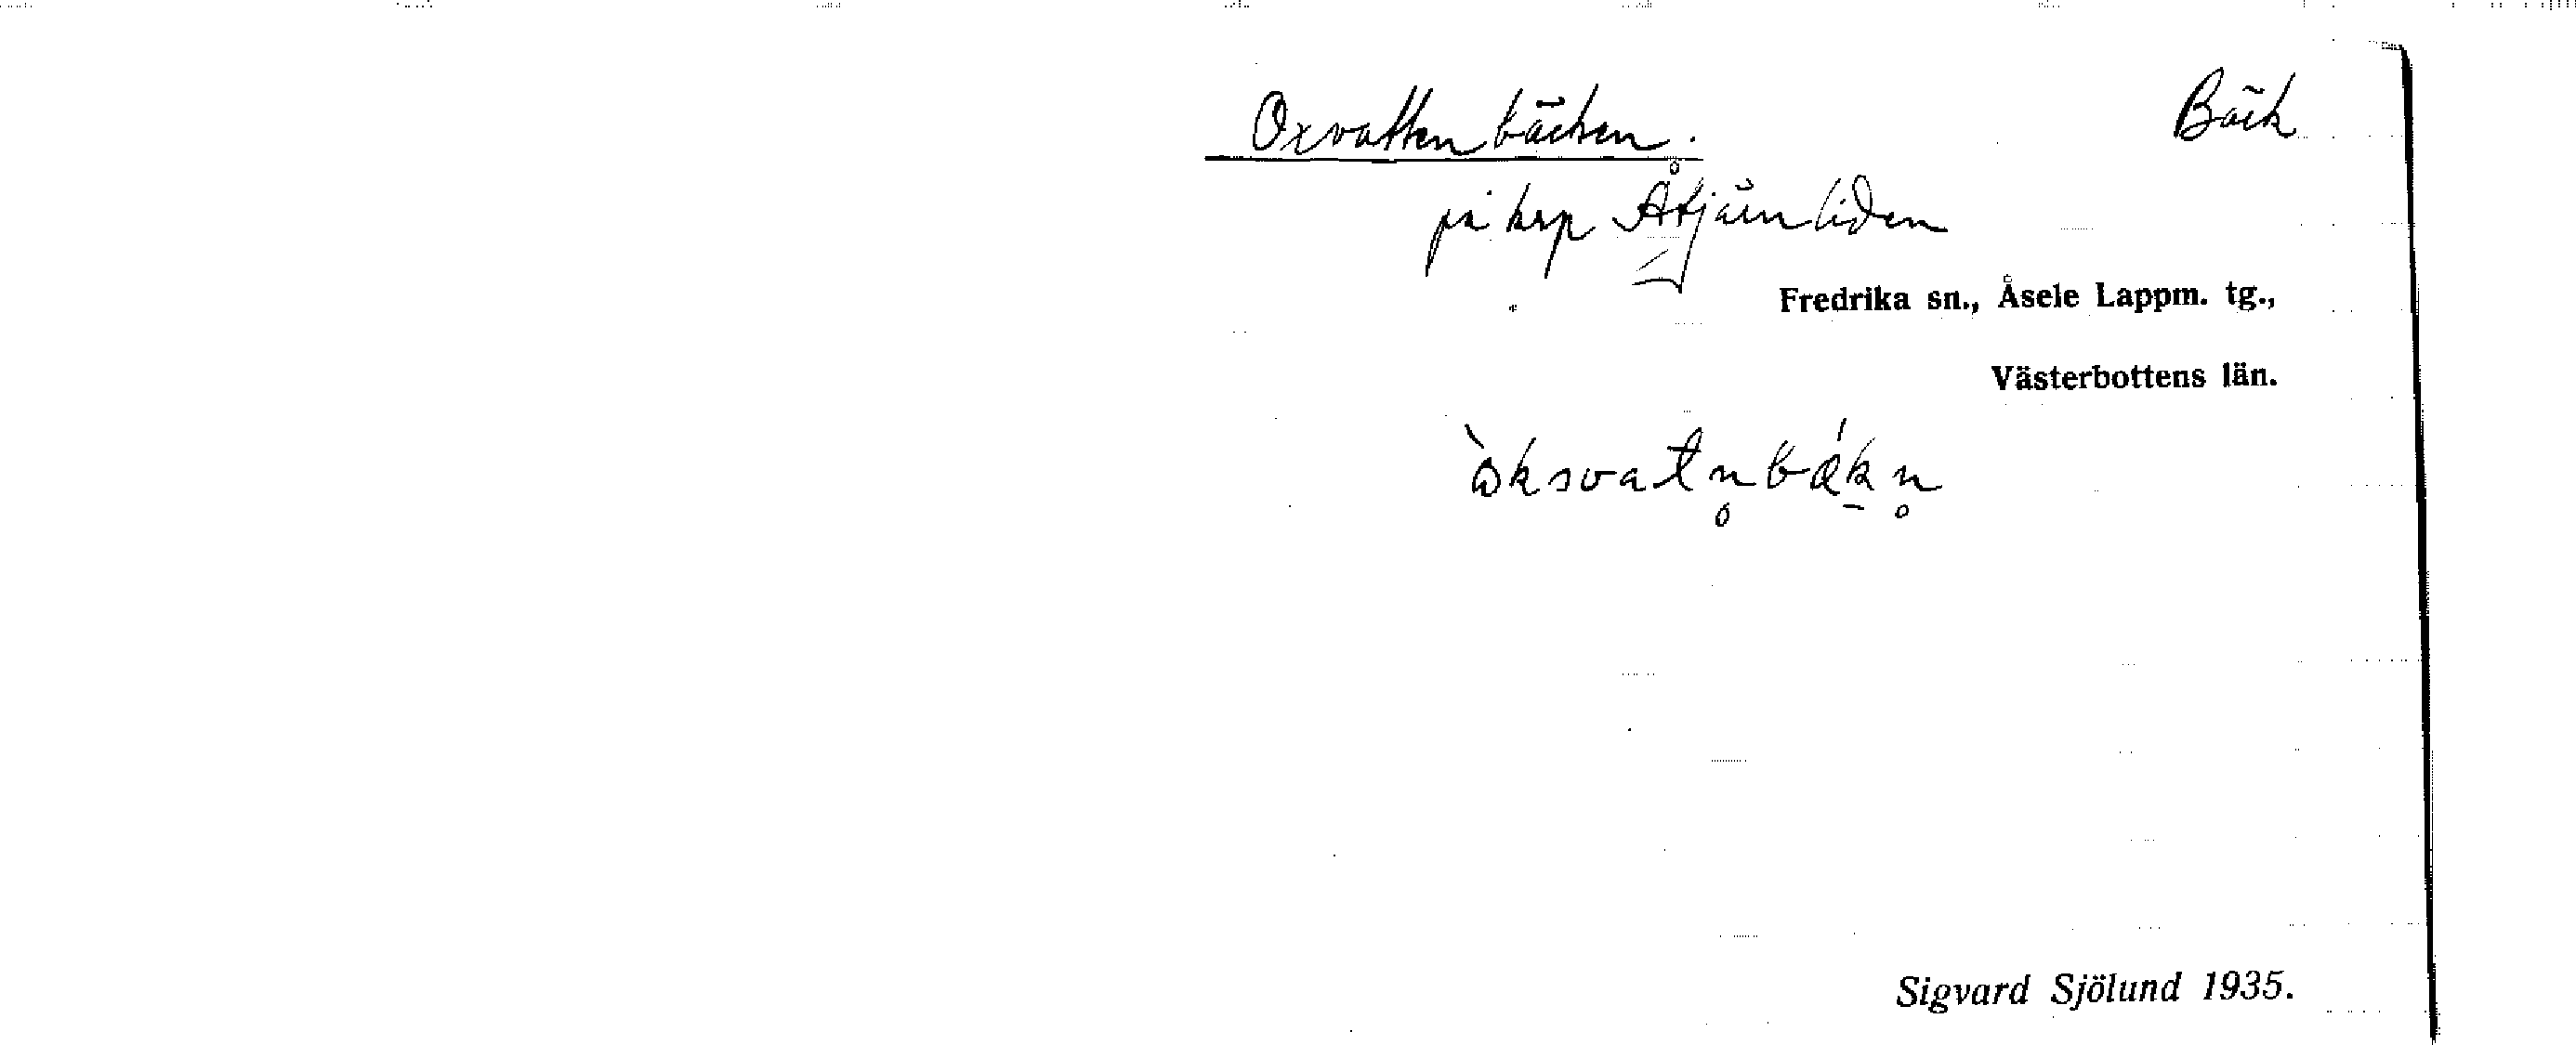 Oxvattenbäcken. Bäck
på krp Åtjärnliden
Fredrika sn., Åsele Lappm. tg.,
Västerbottens län.
òksvatn̥bǽkn̥
Sigvard Sjölund 1935.